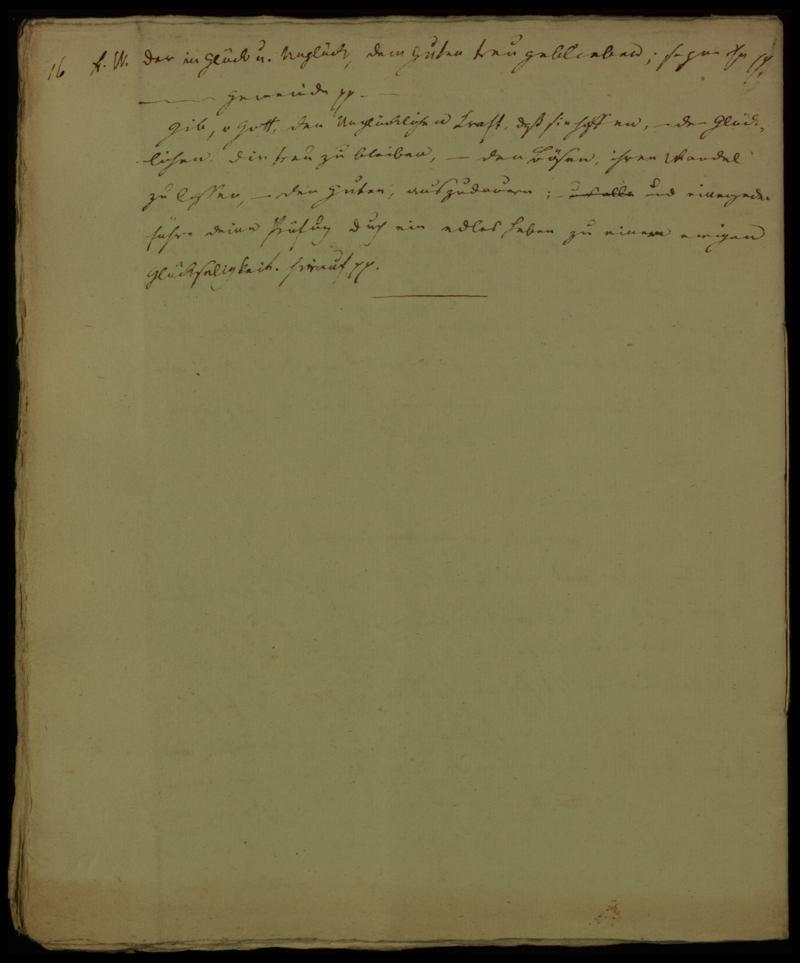 16 A. W. der in Glück u. Unglück, dem Guten treu geblieben; segne ihn pp.
Gemeinde pp. —
Gib, o Gott, den Unglücklichen Kraft, daß sie hoffen, — den Glück-
lichen, dir treu zu bleiben, — den Bösen, ihren Wandel
zu lassen, — den Guten, auszudauern; und alle und einen jeden
führe deine Prüfung durch ein edles Leben zu einem ewigen
Glückseligkeit. Hierauf pp.